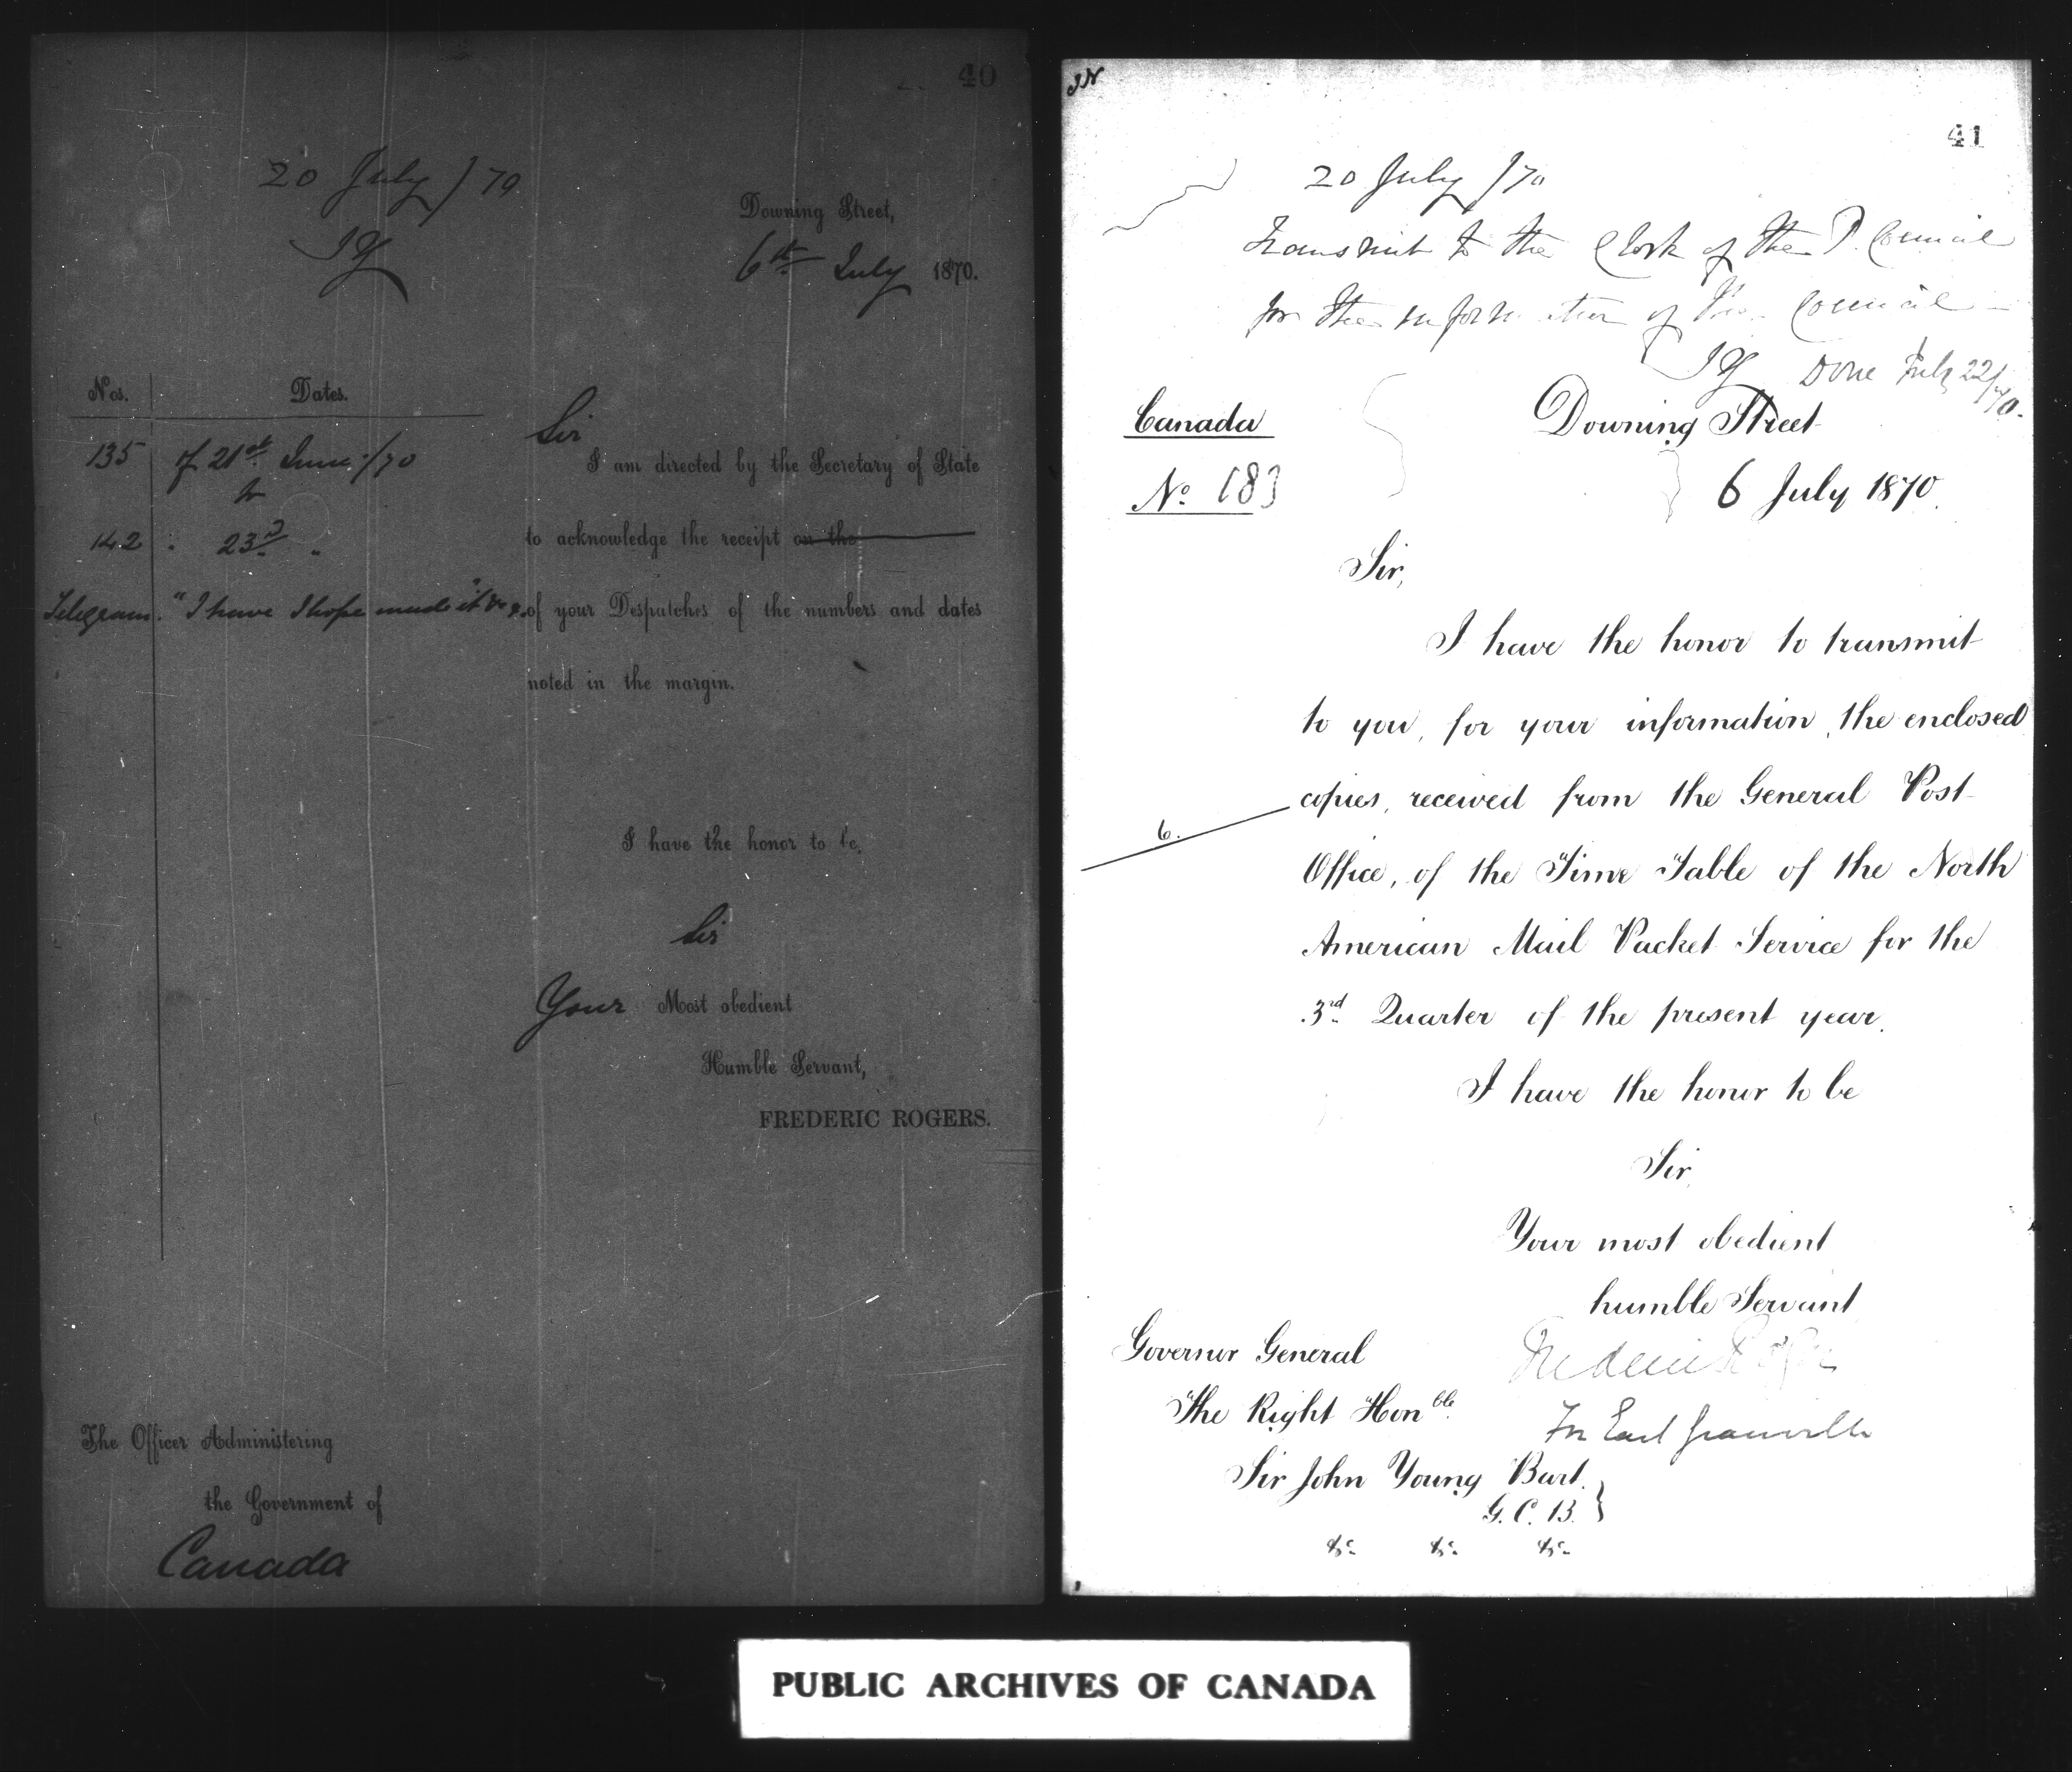 40
20 July / 70
JY
Downing Street,
6th July 1870.
Nos. Dates.
135 of 21st June /70
to
142 " 23rd "
Telegram. "I have I hope made it" &c
Sir
I am directed by the Secretary of State
to acknowledge the receipt on the
of your Despatches of the numbers and dates
noted in the margin.
I have the honor to be,
Sir
Your Most obedient
Humble Servant,
FREDERIC ROGERS.
The Officer Administering
the Government of
Canada
41
20 July /70
Transmit to the Clerk of the P. Council
for the information of the Council
JY Done July 22/70.
Canada
No 183
Downing Street
6 July 1870.
Sir,
I have the honor to transmit
to you, for your information, the enclosed
copies, received from the General Post
6.
Office, of the Time Table of the North
American Mail Packet Service for the
3rd Quarter of the present year.
I have the honor to be
Sir,
Your most obedient
humble Servant
Frederic Rogers
For Earl Granville
Governor General
The Right Honble
Sir John Young Bart.
G. C. B.
&c &c &c
PUBLIC ARCHIVES OF CANADA